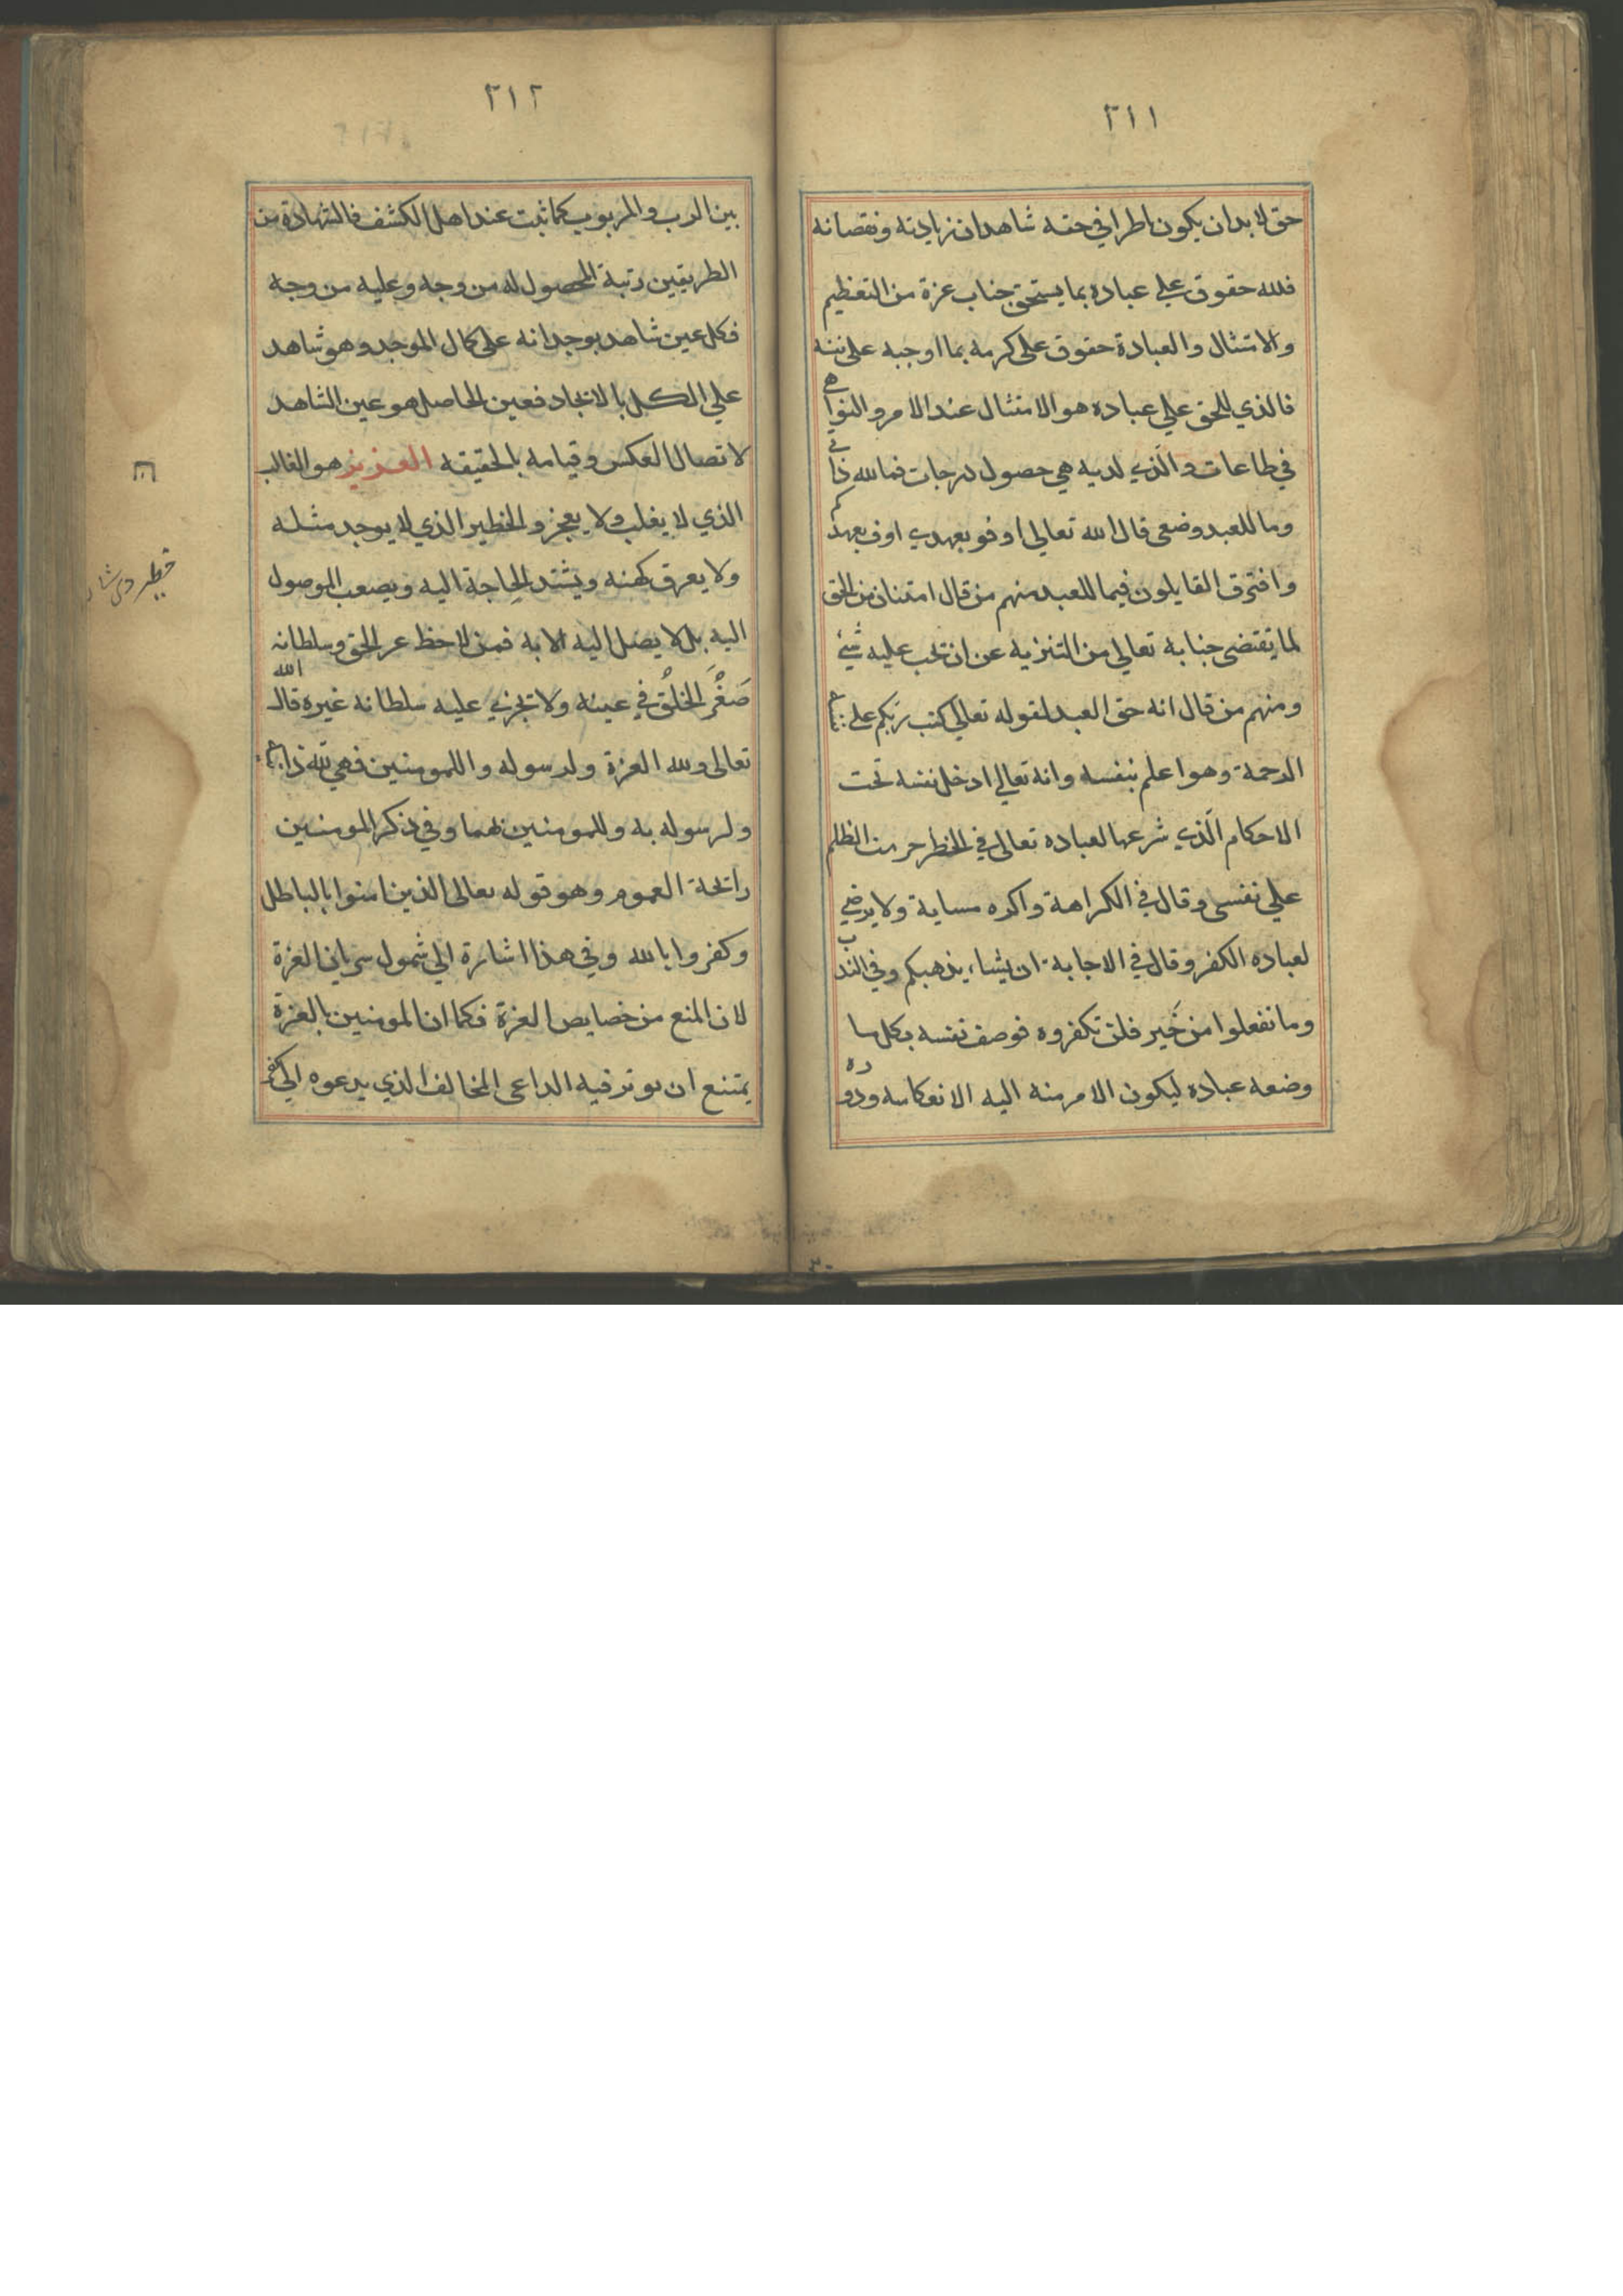 ٢١١
حق لا بد ان يكون ناظرا في حقه شاهدان زيادته ونقصانه
فلله حقوق علي عباده بما يستحق جناب عزة من التعظيم
والامتثال والعبادة حقوق على كرمه بما اوجبه على نفسه
فالذي للحق علي عباده هو الامتثال عند الامر والنواهي
في طاعات والذي لديه هي حصول درجات فما لله ذاتي
وما للعبد وضعى قال الله تعالى اوفو بعهدي اوف بعهدكم
وافترق القايلون فيما للعبد منهم من قال امتنان من الحق
لما يقتضى جنابه تعالى من التنزيه عن ان تجب عليه شيئ
ومنهم من قال انه حق العبد لقوله تعالى كتب ربكم على
الرحمة وهو اعلم بنفسه وانه تعالي ادخل نفسه تحت
الاحكام الذي شرعها لعباده تعالى في الخطر حرمت الظلم
علي نفسى وقال في الكراهة واكره مساية ولا يرضي
لعباده الكفر وقال في الاجابة ان يشاء يذهبكم وفي الندب
وما تفعلوا من خير فلن تكفروه فوصف نفسه بكل ما
وضعه عباده ليكون الامر منه اليه الانعكاسه ودوره
٢١٢
بين الرب والمربوب كما ثبت عند اهل الكشف فالشهادة من
الطريقين رتبة المحصول له من وجه وعليه من وجه
فكل عين شاهد بوجدانه على كمال الموجد وهو شاهد
علي الكل بالاتجاد فعين الحاصل هو عين الشاهد
لاتصال العكس وقيامه بالحقيقه العزيز هو الغالب
الذي لا يغلب ولا يعجز والخطير الذي لا يوجد مثله
ولا يعرق كهنه ويشتد الحاجة اليه ويصعب الموصول
اليه بل لا يصل اليه الا به فمن لاحظ عز الحق وسلطانه
صغر الخلق في عينه ولا تجزي عليه سلطانه غيره قال الله
تعالى ولله العزة ولرسوله واللمومنين فهي لله
ولرسوله به وللمومنين بهما وفي ذكر المومنين
رائحة العموم وهو قوله تعالى الذين امنوا بالباطل
وكفروا بالله وفي هذا اشارة الي شمول سريان العزة
لان المنع من خصايص العزة فكما ان المومنين بالعزة
يمتنع ان يوتر فيه الداعى المخالف الذي يدعوه الي
خطير